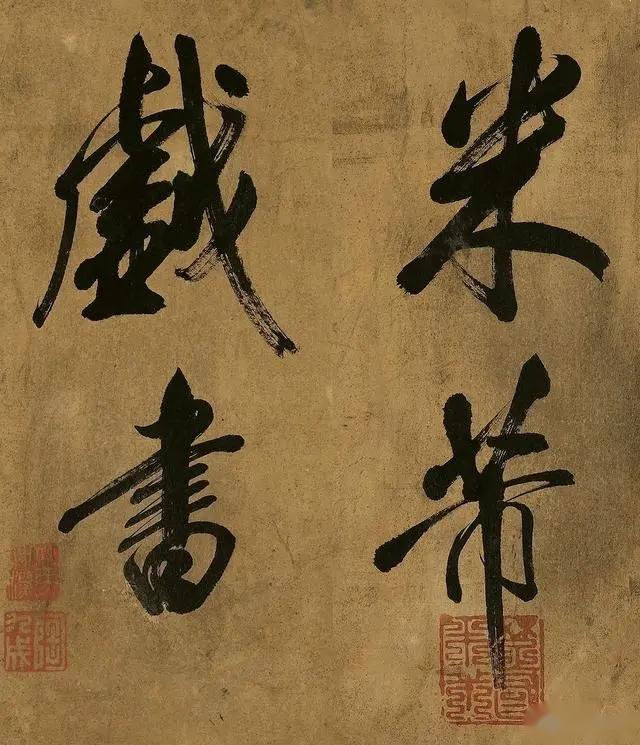 米芾
戲書